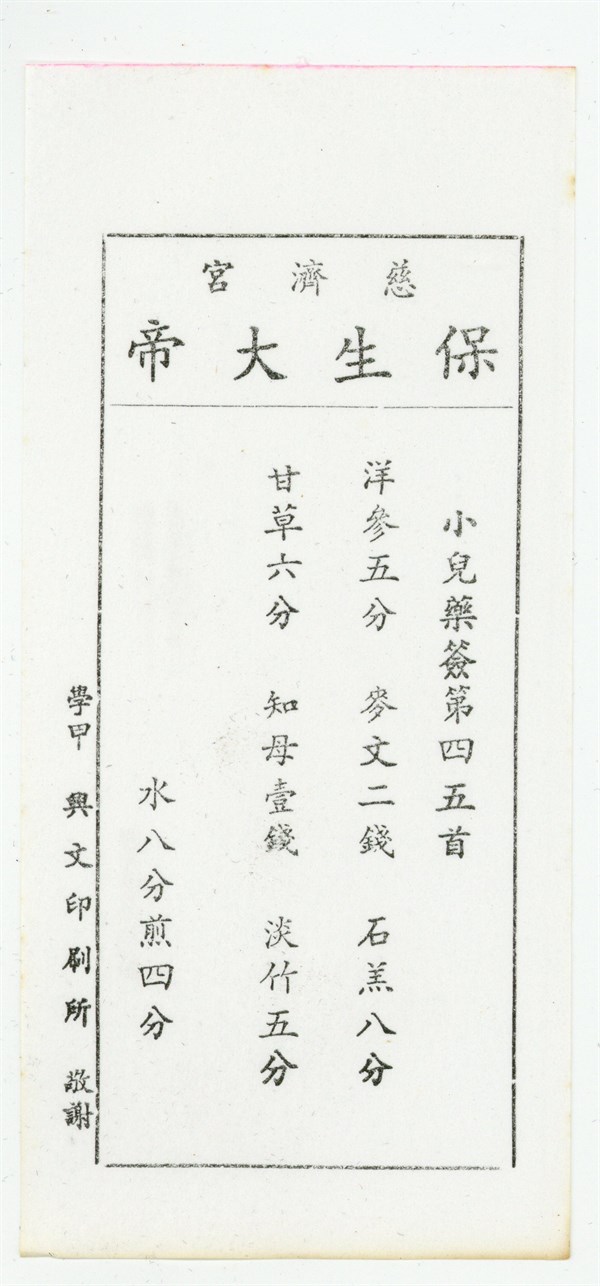 慈濟宮
保生大帝
小兒藥簽第四五首
洋參五分　麥文二錢　石羔八分
甘草六分　知母壹錢　淡竹五分
水八分煎四分
學甲　興文印刷所　敬謝